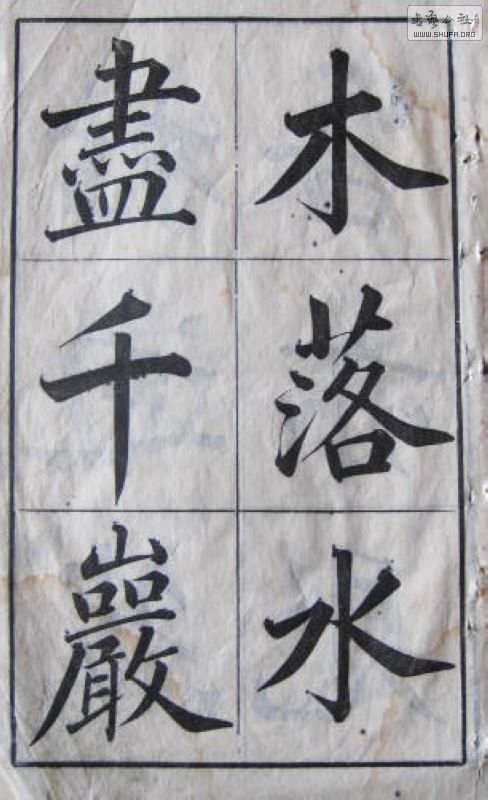 木落水
盡千巖
書藝公社
WWW.SHUFA.ORG